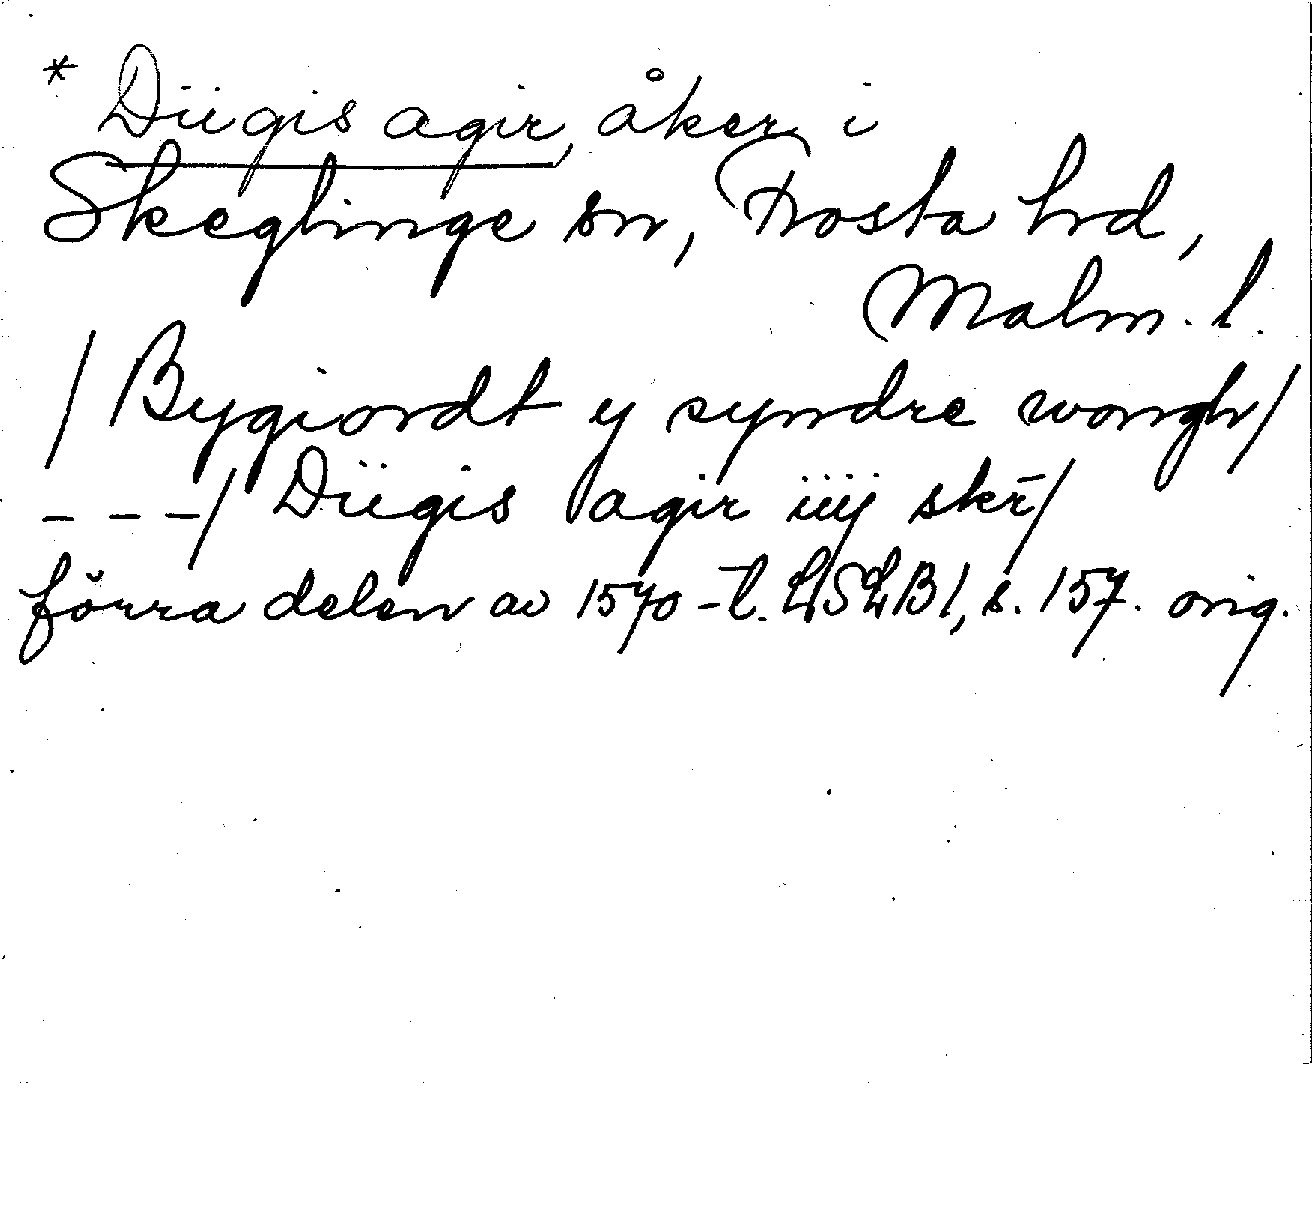 * Diigis agir, åker i
Skeglinge sn, Frosta hrd,
Malm. l.
/ Bygiordt y syndre wongh/
- - -/ Diigis agir iiij skr̄/
förra delen av 1570-t. LSLB1, s. 157. orig.